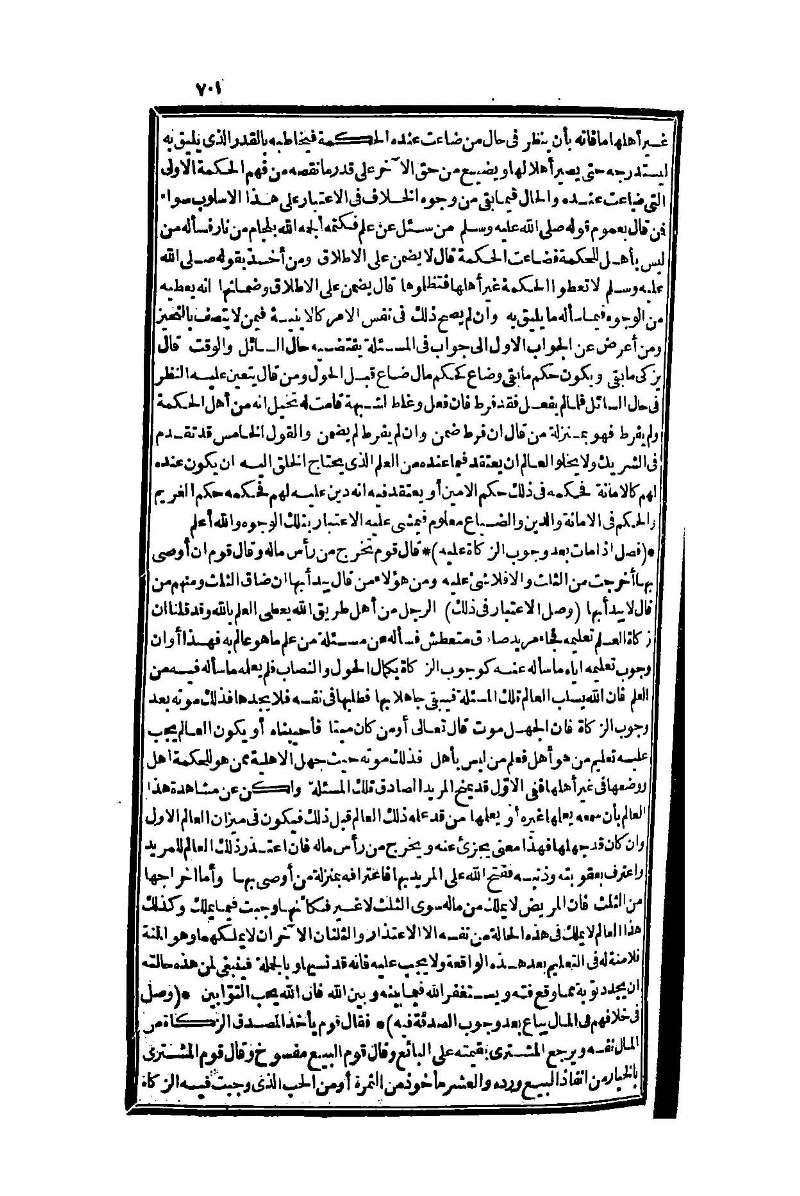 ٧٠١
غير أهلها ما فاته بأن ينظر في حال من ضاعت عنده الحكمة فيخاطبه بالقدر الذي يليق به
ليستدرجه حتى يصير أهلا لها ويضيع من حق الآخر على قدر ما نقصه من فهم الحكمة الاولى
التي ضاعت عنده والحال فيما بقي من وجوه الخلاف في الاعتبار على هذا الاسلوب سواء
فمن قال بعموم قوله صلى الله عليه وسلم من سئل عن علم فكتمه ألجمه الله بلجام من نار فسأله من
ليس بأهل للحكمة فضاعت الحكمة قال لا يضمن على الاطلاق ومن أخذ بقوله صلى الله
عليه وسلم لا تعطوا الحكمة غير أهلها فتظلموها قال يضمن على الاطلاق وضمانها انه يعطيه
من الوجوه فيما سأله ما يليق به وان لم يصح ذلك في نفس الامر كالاينية فيمن لا يتصف بالتحيز
ومن أعرض عن الجواب الاول الى جواب في المسئلة يقتضيه حال السائل والوقت قال
يزكى ما بقي ويكون حكم ما بقي وضاع كحكم مال ضاع قبل الحول ومن قال يتعين عليه النظر
في حال السائل فلما لم يفعل فقد فرط فان فعل وغلط لشبهة قامت له تخيل انه من أهل الحكمة
ولم يفرط فهو بمنزلة من قال ان فرط ضمن وان لم يفرط لم يضمن والقول الخامس قد تقدم
في الشريك ولا يخلو العالم ان يعتقد فيما عنده من العلم الذي يحتاج الخلق اليه ان يكون عنده
لهم كالامانة فحكمه في ذلك حكم الامين أو يعتقد فيه انه دين عليه لهم فحكمه حكم الغريم
والحكم في الامانة والدين والضياع معلوم فيمشى عليه الاعتبار بتلك الوجوه والله أعلم
*(فصل اذا مات بعد وجوب الزكاة عليه)* قال قوم تخرج من رأس ماله وقال قوم ان أوصى
بها أخرجت من الثلث والا فلا شئ عليه ومن هؤلاء من قال يبدأ بها ان ضاق الثلث ومنهم من
قال لا يبدأ بها (وصل الاعتبار في ذلك) الرجل من أهل طريق الله يعطى العلم بالله وقد قلنا ان
زكاة العلم تعليمه فجاء مريد صادق متعطش فسأله عن مسئلة من علم ما هو عالم به فهذا أوان
وجوب تعليمه اياه ما سأله عنه كوجوب الزكاة بكمال الحول والنصاب فلم يعلمه ما سأله فيه من
العلم فان الله يسلب العالم تلك المسئلة فيبقى جاهلا بها فطلبها في نفسه فلا يجدها فذلك موته بعد
وجوب الزكاة فان الجهل موت قال تعالى أو من كان ميتا فأحييناه أو يكون العالم يجب
عليه تعليم من هو أهل فعلم من ليس بأهل فذلك موته حيث جهل الاهلية ممن هو للحكمة أهل
ووضعها في غير أهلها ففي الاول قد يمنح المريد الصادق تلك المسئلة ولكن عن مشاهدة هذا
العالم بأن سمعه يعلمها غيره أو يعلمها من قد علمه ذلك العالم قبل ذلك فيكون في ميزان العالم الاول
وان كان قد جهلها فهذا معنى يجزئ عنه ويخرج من رأس ماله فان اعتذر ذلك العالم للمريد
واعترف بعقوبته وذنبه ففتح الله على المريد بها فاعترافه بمنزلة من أوصى بها وأما اخراجها
من الثلث فان المريض لا يملك من ماله سوى الثلث لا غير فكأنها وجبت فيما يملك وكذلك
هذا العالم لا يملك في هذه الحالة من نفسه الا الاعتذار والثلثان الآخران لا يملكهما وهو المنة
فلا منة له في التعليم بعد هذه الواقعة ولا يجب عليه فانه قد نسيها وبالجملة فينبغي لمن هذه حالته
ان يجدد توبة مما وقع فيه ويستغفر الله فيما بينه وبين الله فان الله يحب التوابين *(وصل
في خلافهم في المال يباع بعد وجوب الصدقة فيه)* فقال قوم يأخذ المصدق الزكاة من
المال نفسه ويرجع المشترى بقيمته على البائع وقال قوم البيع مفسوخ وقال قوم المشترى
بالخيار من انفاذ البيع ورده والعشر مأخوذ من الثمرة أو من الحب الذي وجبت فيه الزكاة